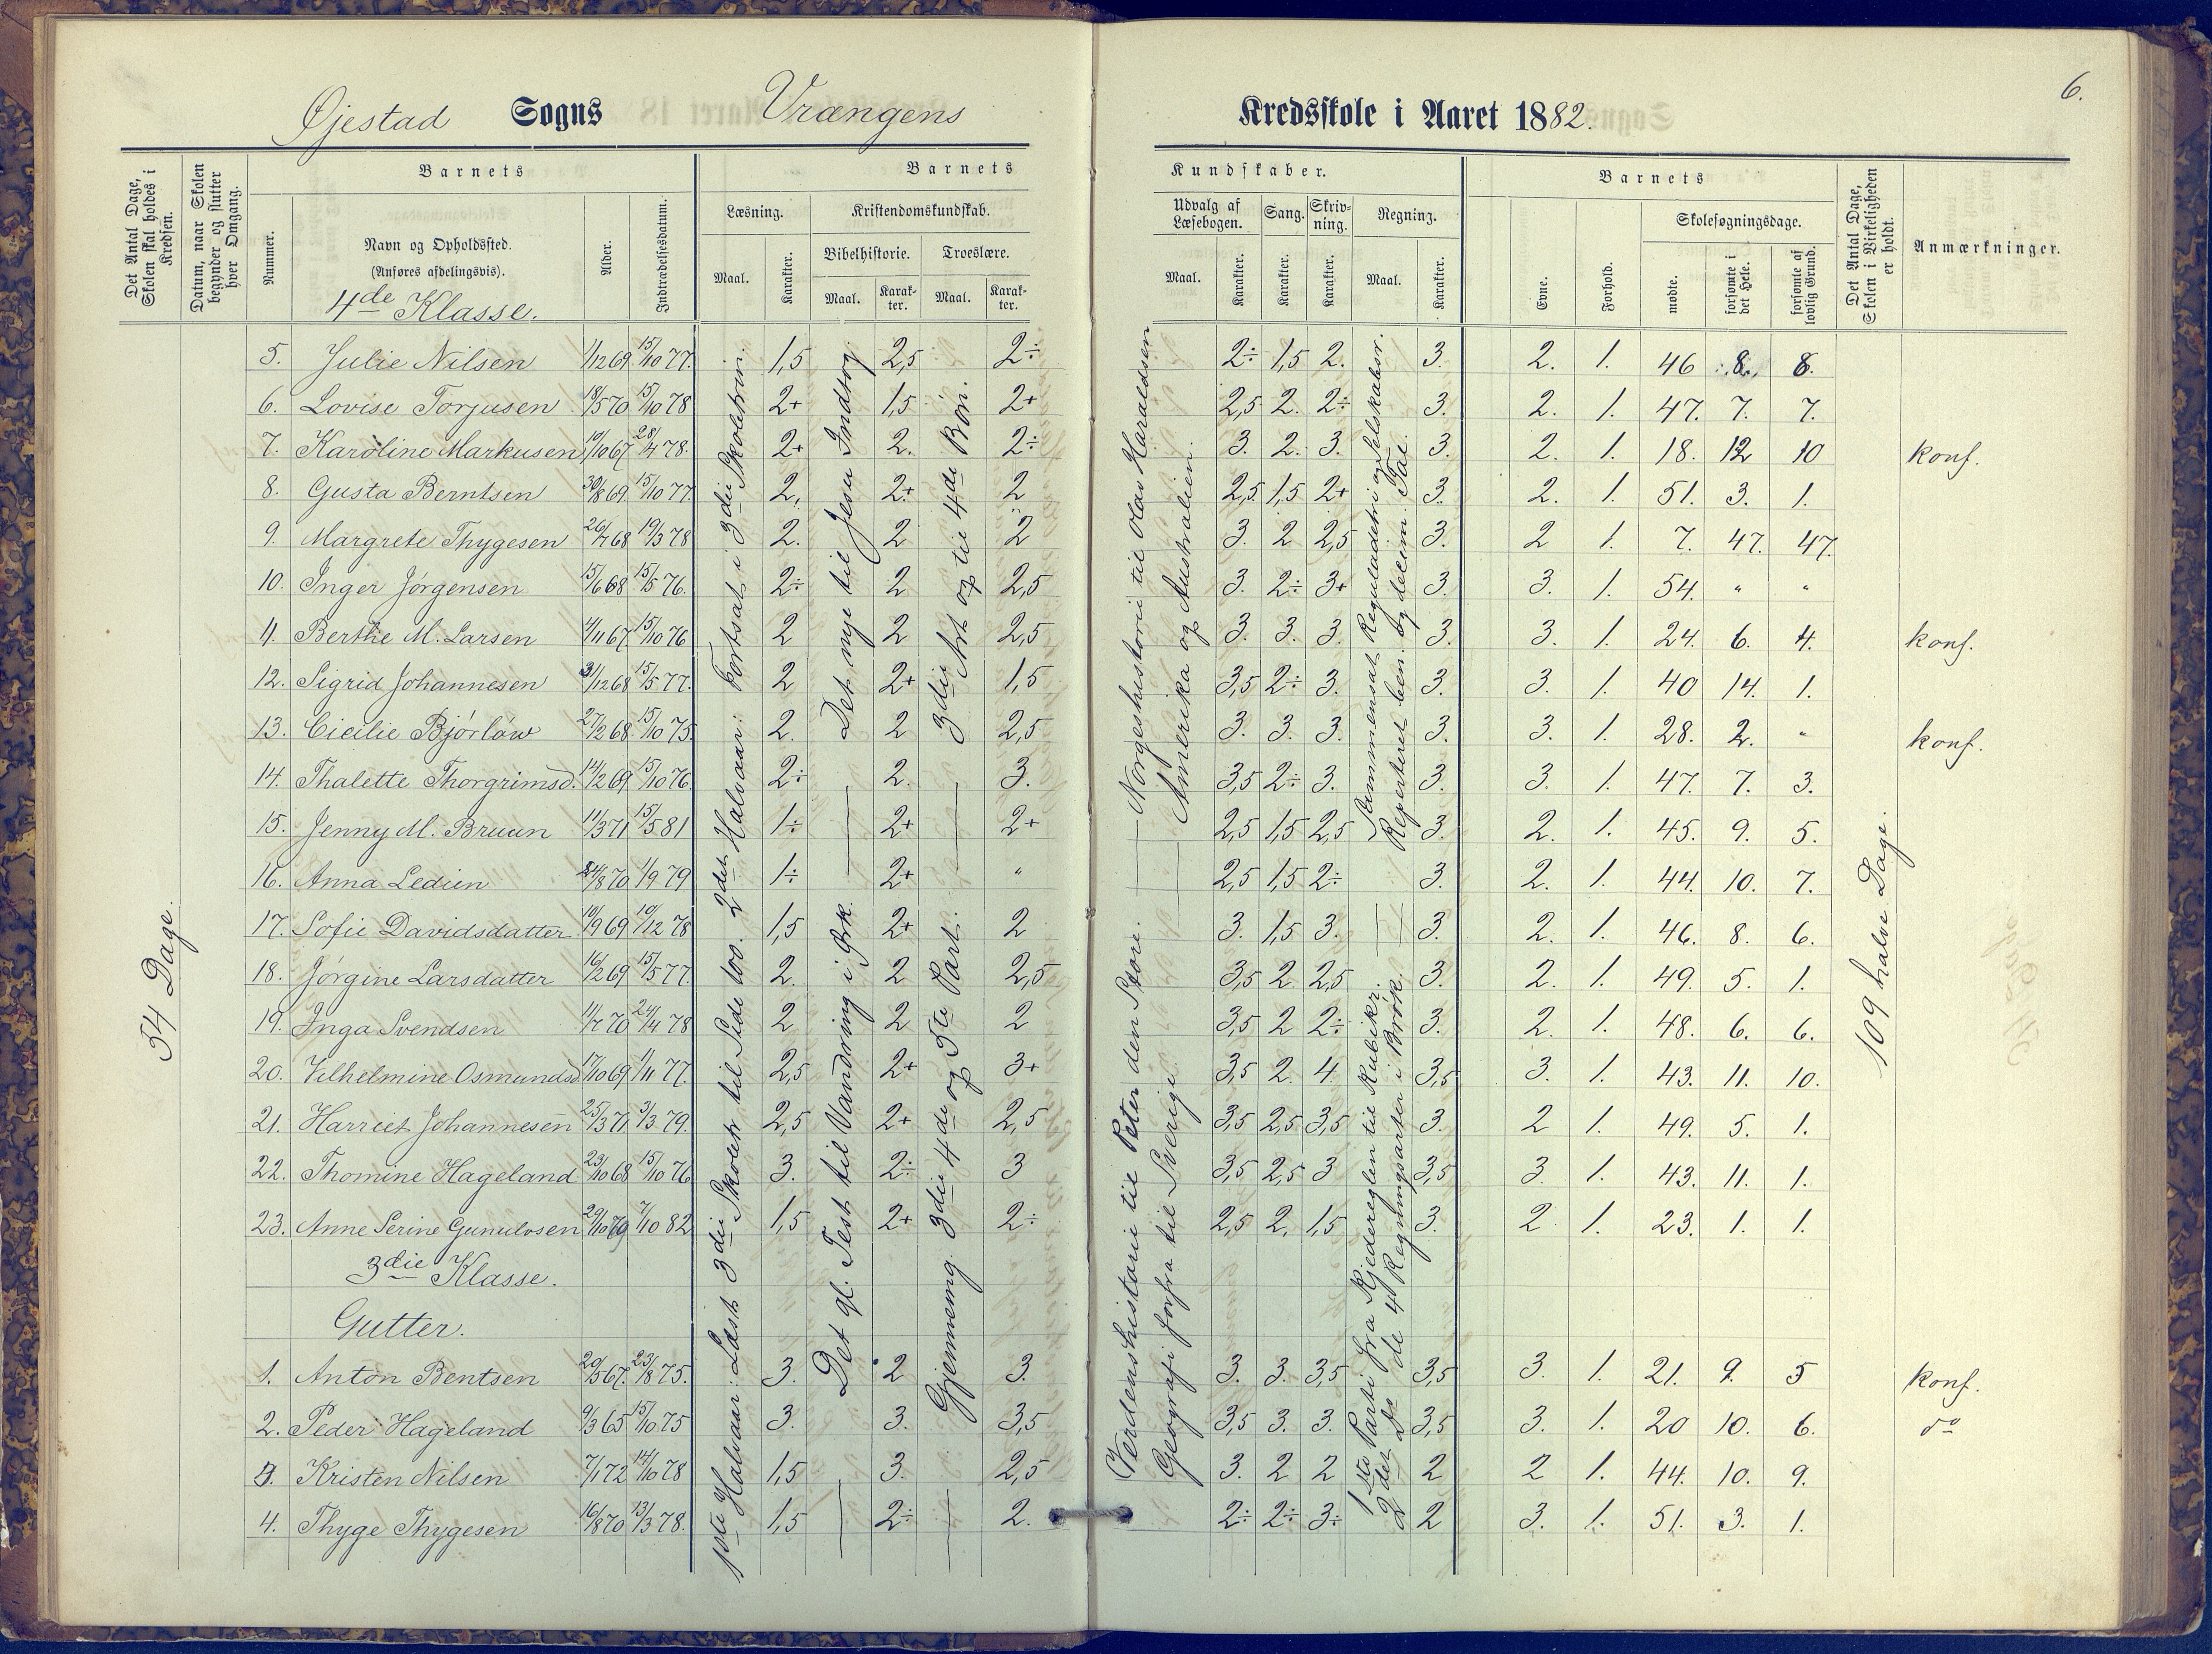 6.
Øjestad Sogns Vrængens Kredsskole i Aaret 1882.
Det Antal Dage, Skolen skal holdes i Kredsen.
Datum, naar Skolen begynder og slutter hver Omgang.
Nummer.
Barnets
Navn og Opholdssted.
(Anføres afdelingsvis).
Alder.
Indtrædelsesdatum.
Barnets Kundskaber.
Læsning.
Maal.
Karakter.
Kristendomskundskab.
Bibelhistorie.
Maal.
Karakter.
Troeslære.
Maal.
Karakter.
Udvalg af Læsebogen.
Maal.
Karakter.
Sang.
Karakter.
Skrivning.
Karakter.
Regning.
Maal.
Karakter.
Barnets
Evne.
Forhold.
Skolesøgningsdage.
mødte.
forsømte i det Hele.
forsømte af lovlig Grund.
Det Antal Dage, Skolen i Virkeligheden er holdt.
Anmærkninger.
4de Klasse.
5. Julie Nilsen 1/12 69 15/10 77. 1,5 2,5 2÷ 2÷ 1,5 2. 3. 2. 1. 46 8. 8.
6. Lovise Torjusen 18/5 70 15/10 78 2+ 1,5 2+ 2,5 2. 2÷ 3. 2. 1. 47. 7. 7.
7. Karoline Markusen 10/10 67 28/4 78. 2+ 2. 2÷ 3. 2. 3. 3. 2. 1. 18. 12 10 konf.
8. Gusta Berntsen 30/8 69. 15/10 77. 2. 2+ 2 2,5 1,5 2+ 3. 2. 1. 51. 3. 1.
9. Margrete Thygesen 26/7 68 19/3 78 2. 2 2 3. 2 2,5 3. 2 1. 7. 47. 47.
10. Inger Jørgensen 15/6 68 15/5 76. 2÷ 2 2,5 3. 2÷ 3+ 3. 3. 1. 54. " "
11. Berthe M. Larsen 4/11 67. 15/10 76 2 2 2,5 3. 3. 3. 3. 3. 1. 24. 6. 4. konf.
12. Sigrid Johannesen 31/12 68 15/5 77. 2 2+ 1,5 3,5 2÷ 3. 3. 3. 1. 40 14. 1.
13. Cicilie Bjørlów 27/2 68. 15/10 75. 2. 2 2,5 3. 3. 3. 3. 3. 1. 28. 2. " konf.
14. Thalette Thorgrimsd. 14/2 69. 15/10 76. 2÷ 2. 3. 3,5 2÷ 3. 3. 3. 1. 47. 7. 3.
15. Jenny M. Bruun 11/3 71 15/5 81 1÷ 2+ 2+ 2,5 1,5 2,5 3. 2. 1. 45. 9. 5.
16. Anna Ledien 24/8 70 1/9 79 1÷ 2+ " 2,5 1,5 2÷ 3. 2. 1. 44. 10. 7.
17. Sofie Davidsdatter 10/9 69 10/12 78 1,5 2+ 2 3. 1,5 3. 3. 2. 1. 46. 8. 6.
18. Jørgine Larsdatter 16/2 69 15/5 77. 2. 2 2,5 3,5 2 2,5 3. 2. 1. 49. 5. 1.
19. Inga Svendsen 11/7 70 24/4 78 2 2 2 3,5 2 2÷ 3. 2. 1. 48. 6. 6.
20. Vilhelmine Osmundsd. 17/10 69 1/11 77. 2,5 2+ 3+ 3,5 2. 4. 3,5 3. 1. 43. 11. 10.
21. Harriet Johannesen 25/3 71 3/3 79. 2,5 2+ 2,5 3,5 2,5 3,5 3. 2 1. 49. 5. 1.
22. Thomine Hageland 23/10 68 15/10 76 3. 2÷ 3 3,5 2,5 3 3,5 3. 1. 43. 11. 1.
23. Anne Serine Gunulvsen 7/10 82 1,5 2+ 2÷ 2,5 2. 1,5 3. 2. 1. 23. 1. 1.
3die Klasse.
Gutter.
1. Anton Bentsen 20/5 67. 23/8 75. 3. 2 3. 3. 3. 3,5 3,5 3. 1. 21. 9. 5 konf.
2. Peder Hageland 9/3 65 15/10 75 3. 3. 3,5 3,5 3. 3. 3,5 3. 1. 20 10. 6. do
3. Kristen Nilsen 7/1 72 14/10 78 1,5 3. 2,5 3. 2 2 2 2 1. 44. 10. 9.
4. Thyge Thygesen 16/8 70 13/3 78. 1,5 2÷ 2. 2÷ 2÷ 3÷ 2 3. 1. 51. 3. 1.
54 Dage.
1ste Halvaar: Læst 3die Skoletr til Side 100. 2det Halvaar: Fortsat i 3die Skoletrin.
Det gl. Test til Vandring i Ørk.
Det nye til Jesu Indtog
Gjennemg. 3die 4de og 5te Part.
3die Art. op til 4de Bøn.
Verdenshistorie til Peter den Store. — Norgeshistorie til Olav Haraldsen
Geografi forfra til Sverige. — Amerika og Australien.
1ste Parti fra Kjedereglen til Kubikr. Sammensat Reguladetri og Selskabsr.
2det do de 4 Regningsarter i Brøk. Repeteret ben. og decim. Tal.
109 halve Dage.